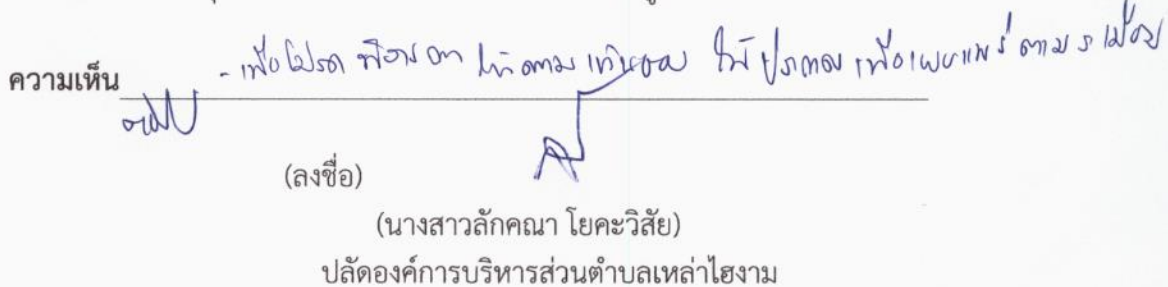 ความเห็น - เพื่อโปรดพิจารณา ให้ตามเห็นชอบ ให้ประกาศเพื่อเผยแพร่ตามระเบียบ
(ลงชื่อ)
(นางสาวลักคณา โยคะวิสัย)
ปลัดองค์การบริหารส่วนตำบลเหล่าไฮงาม